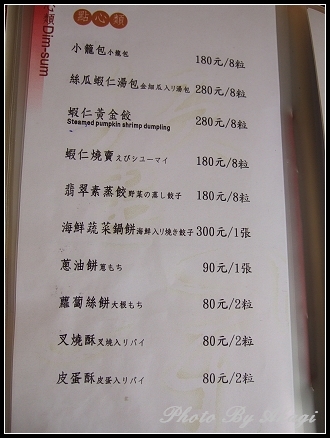 點心類
類Dim-sum
小籠包小籠包 180元/8粒
絲瓜蝦仁湯包金細瓜入り湯包 280元/8粒
蝦仁黃金餃 280元/8粒
Steamed pumpkin shrimp dumpling
蝦仁燒賣えびシューマイ 180元/8粒
翡翠素蒸餃野菜の蒸し餃子 180元/8粒
海鮮蔬菜鍋餅海鮮入り焼き餃子 300元/1張
蔥油餅葱もち 90元/1張
蘿蔔絲餅大根もち 80元/2粒
叉燒酥叉焼入りパイ 80元/2粒
皮蛋酥皮蛋入りパイ 80元/2粒
Photo By